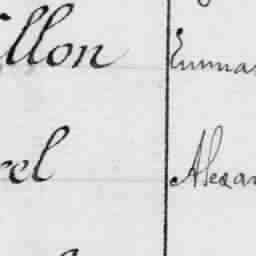 llon Emma
rel Alexan